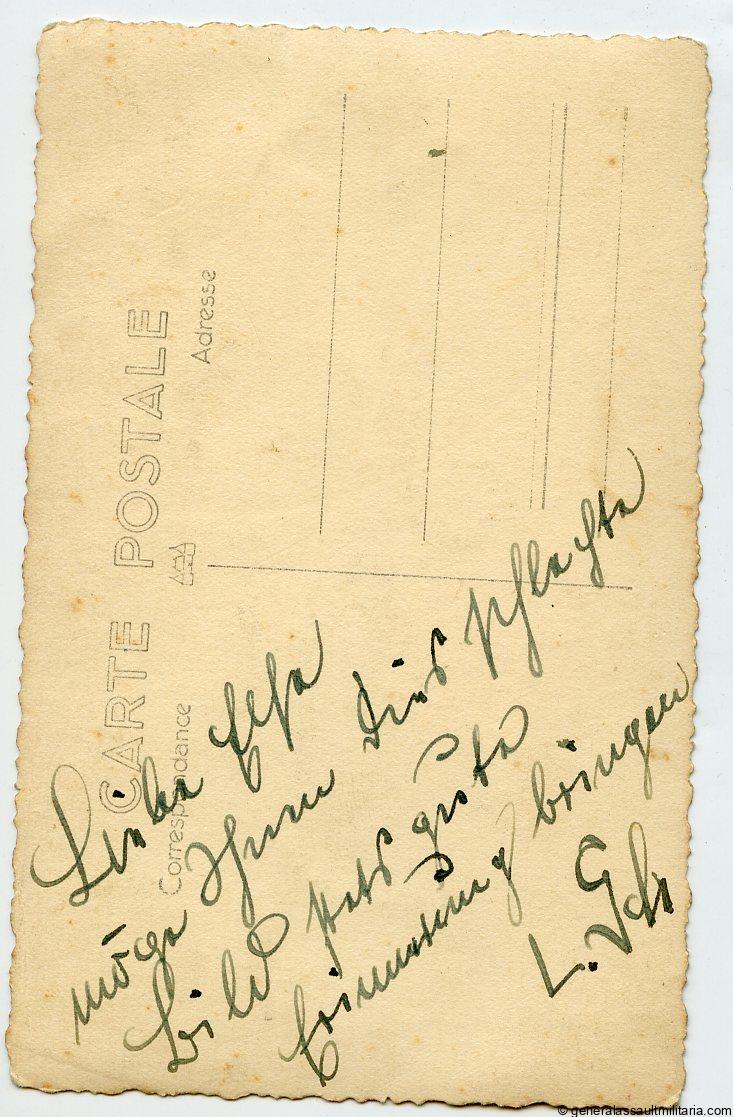 CARTE POSTALE
Correspondance
Adresse
Liebe Elsa
möge Ihnen dies schlechte
Bild stets gute
Erinnerung bringen
L.
© generalassaultmilitaria.com